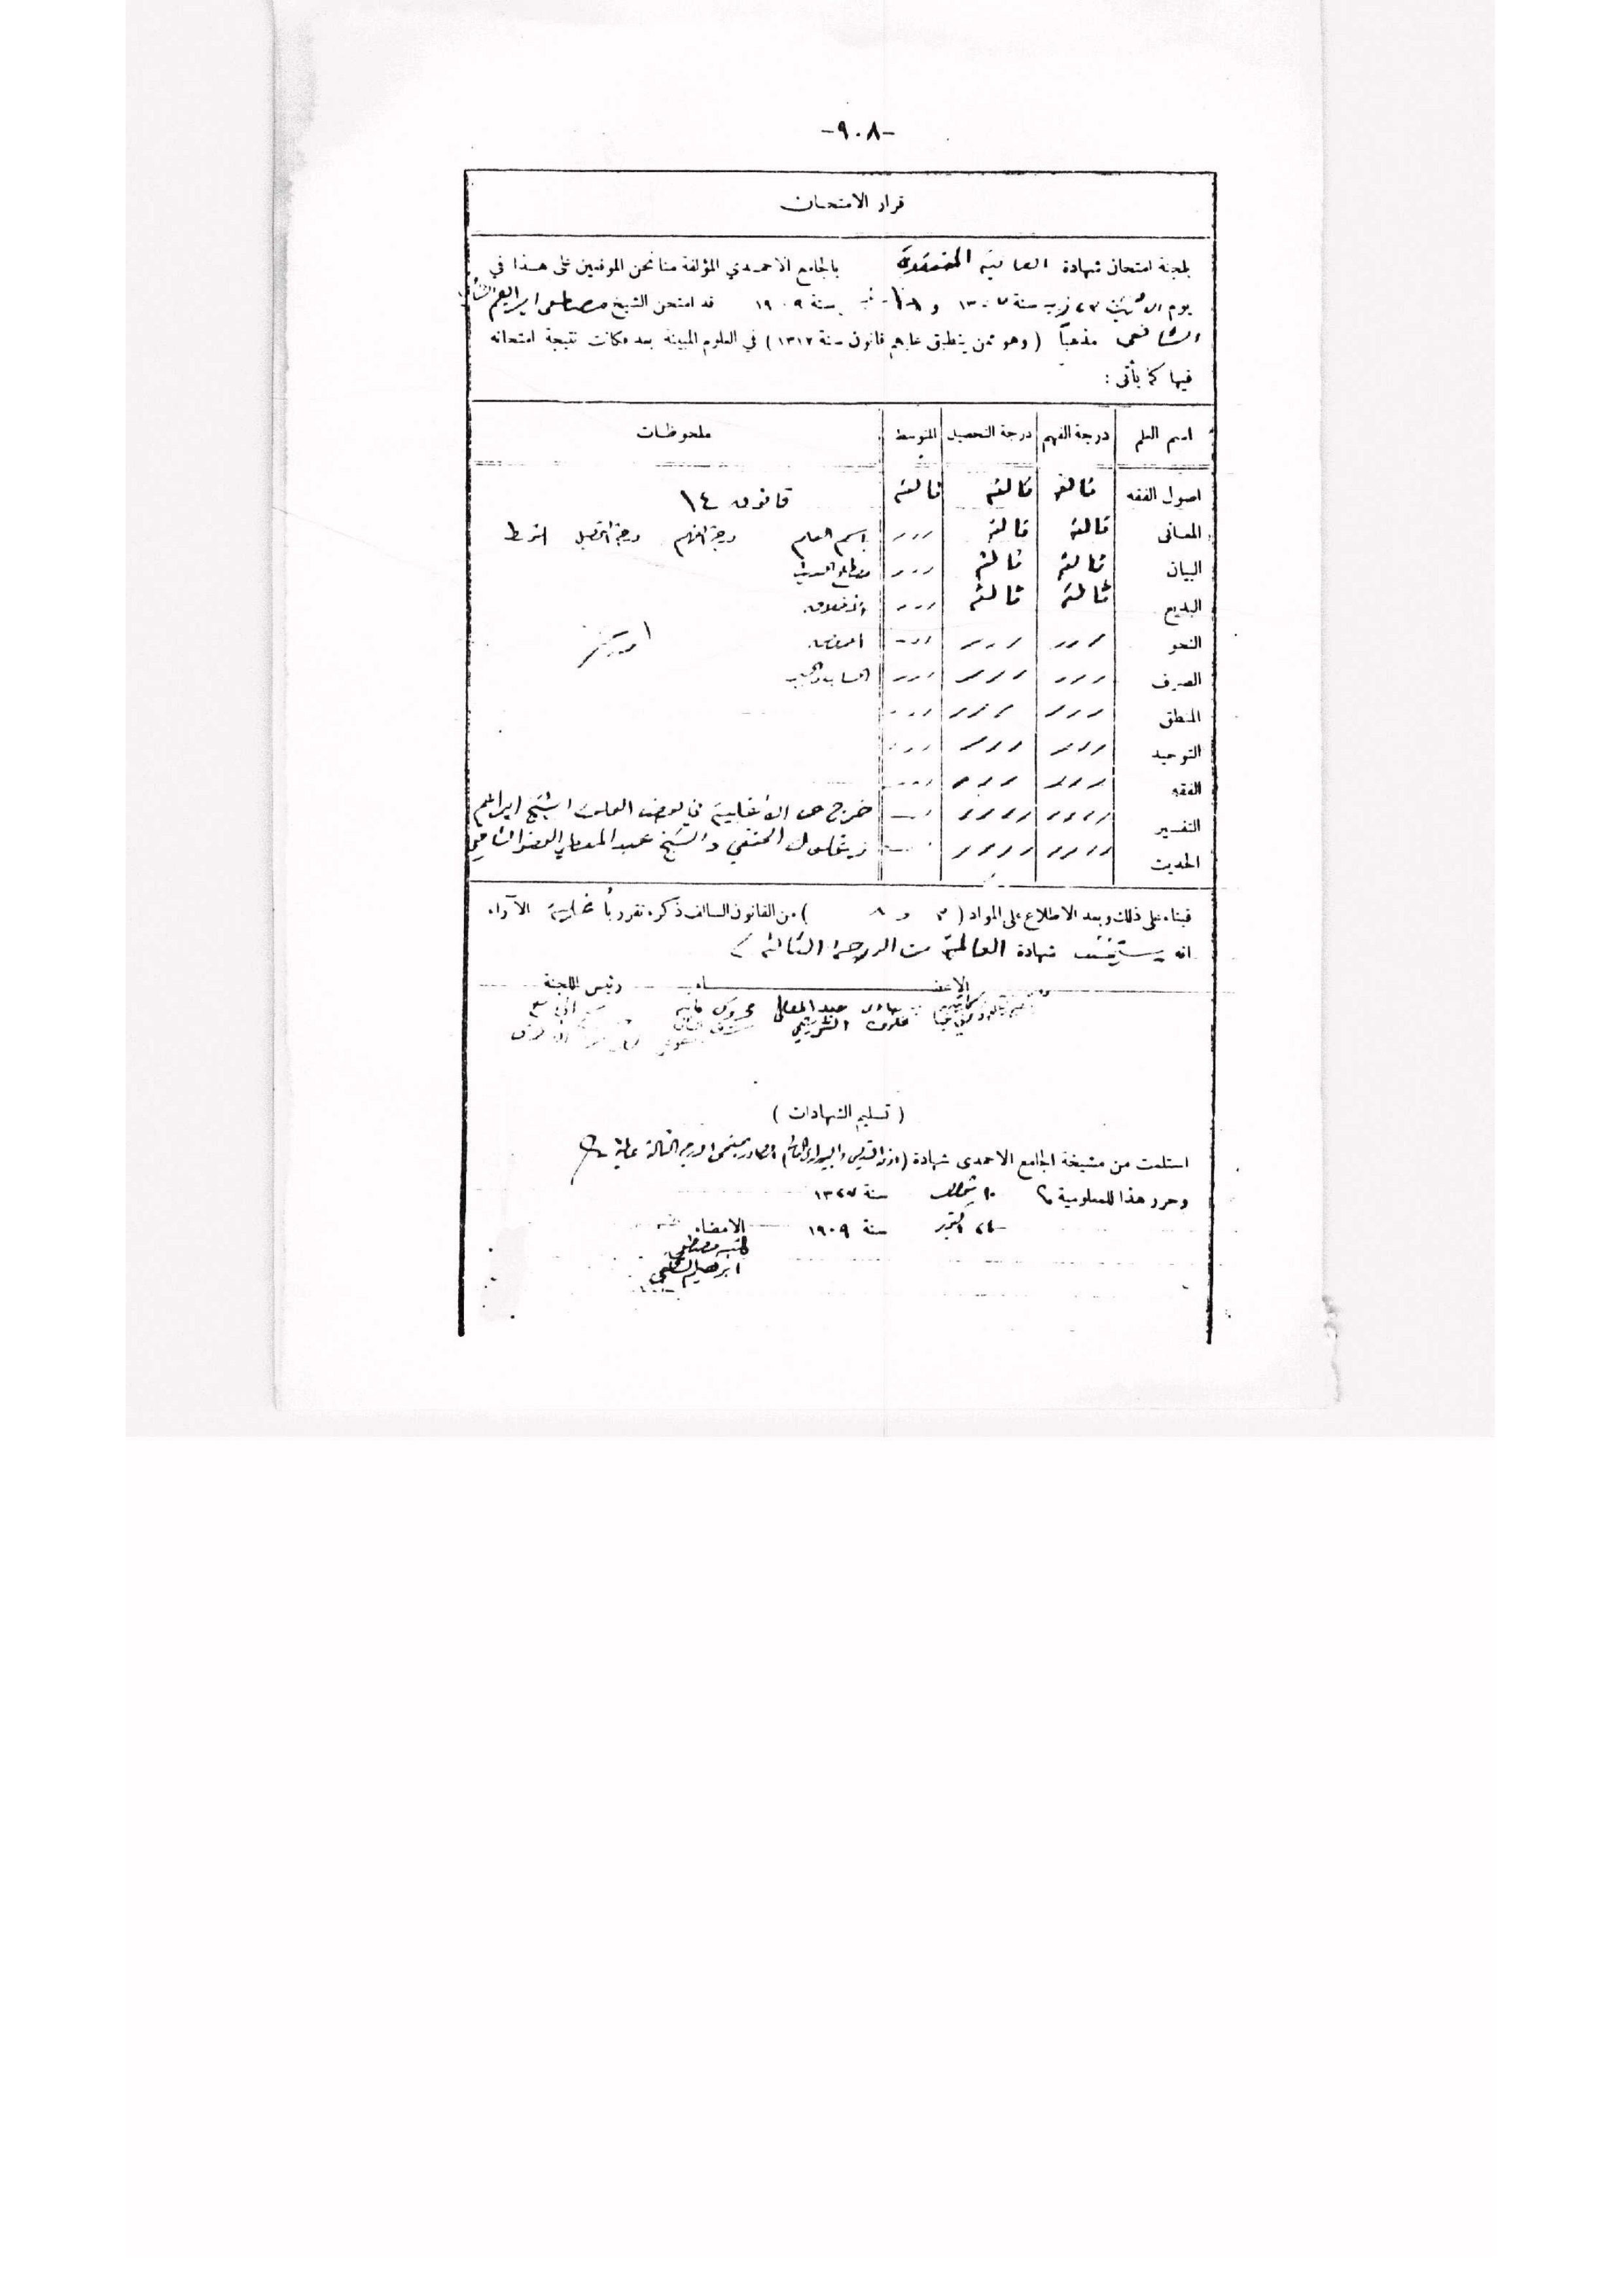 -٩٠٨-
قرار الامتحان
بلجنة امتحان شهادة العالمية المنعقدة بالجامع الاحمدي المؤلفة منا نحن الموقعين على هذا في
يوم الاثنين ٢٣ سنة و سنة ١٩٠٩ قد امتحن الشيخ مصطفى ابراهيم
الشافعى مذهباً ( وهو ممن ينطبق عليهم قانون سنة ١٣١٢ ) في العلوم المبينة بعد فكانت نتيجة امتحانه
فيها كما يأتى :
اسم العلم درجة الفهم درجة التحصيل المتوسط ملحوظات
اصول الفقه ثالثة ثالثة ثالثة قانون ١٤
المعانى ثالثة ثالثة اسم العلم درجة الفهم درجة التحصيل المتوسط
البيان ثالثة ثالثة مصطلح الحديث
البديع ثالثة ثالثة الاخلاق
النحو العروض
الصرف الحساب والجبر
المنطق
التوحيد
الفقه
التفسير خرج عن الأغلبية في بعض العلوم الشيخ ابراهيم
الحديث زغلول الحنفي والشيخ عبد المعطي الشافعي
فبناء على ذلك وبعد الاطلاع على المواد ( ٣ و ٨ ) من القانون السالف ذكره نقرر بأغلبية الآراء
انه يستحق شهادة العالمية من الدرجة الثالثة
الاعضاء رئيس اللجنة
( تسليم الشهادات )
استلمت من مشيخة الجامع الاحمدى شهادة
وحرر هذا للمعلومية ١٠ شوال سنة ١٣٢٧
٢٤ اكتوبر سنة ١٩٠٩
الامضاء
كتبه مصطفى
ابراهيم